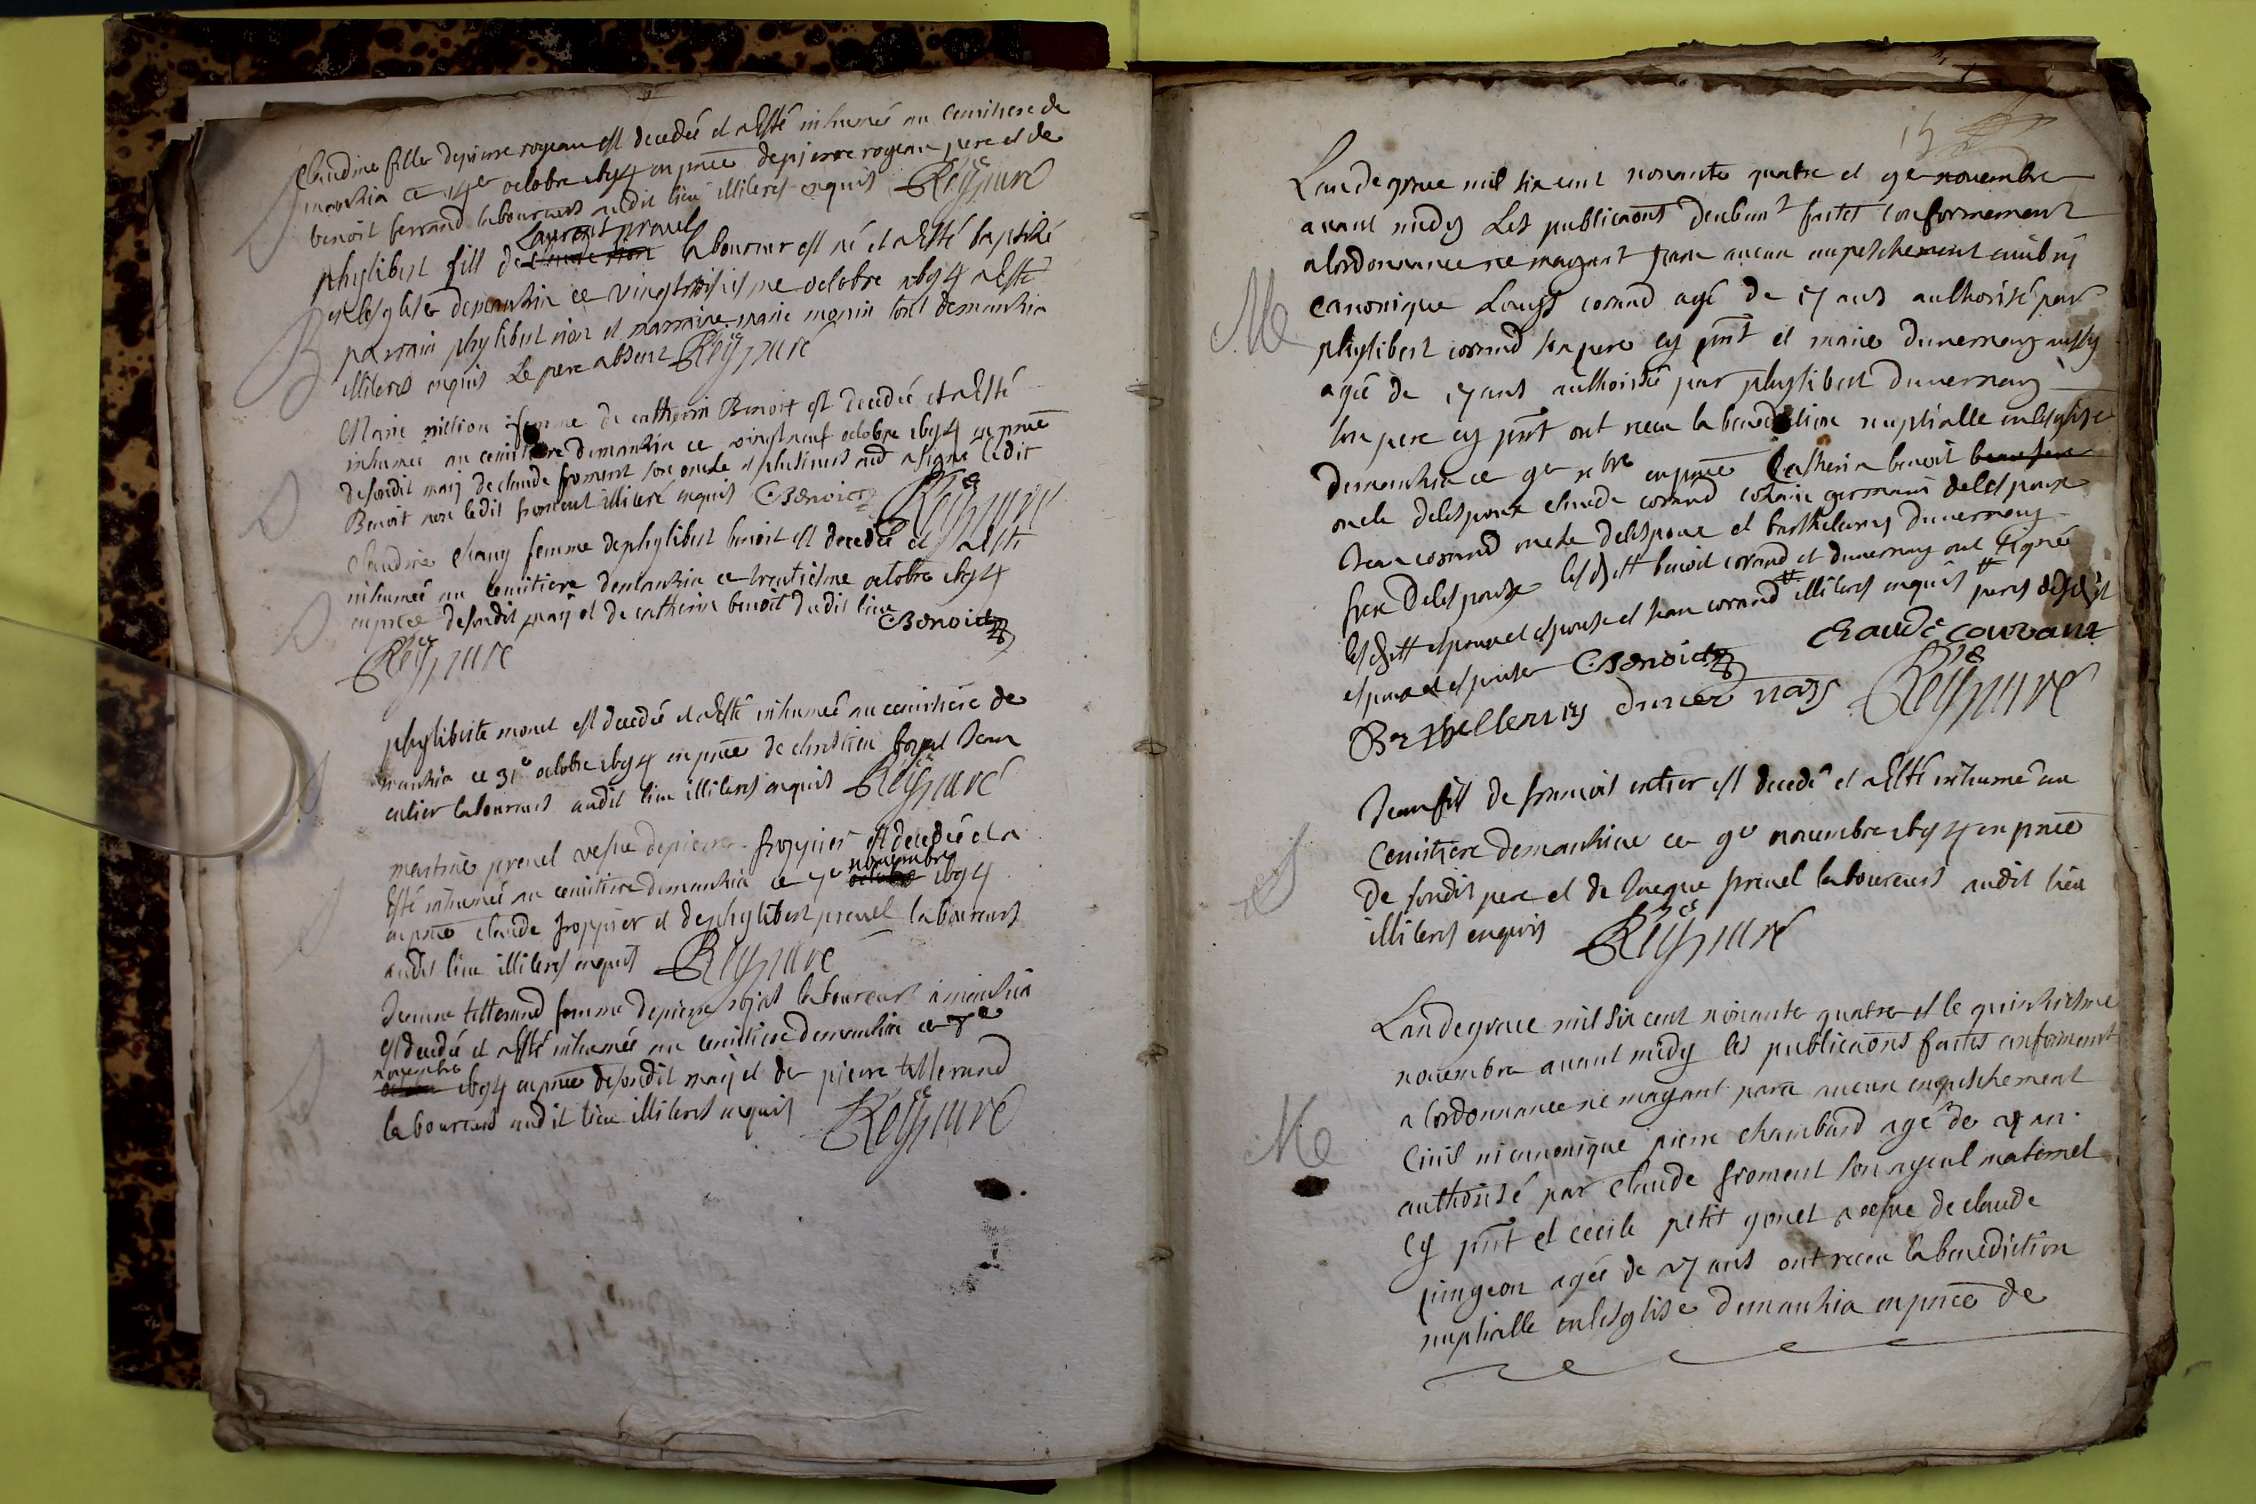 Claudine fille depierre rogeau est decedeé et a Esté inhumeé au Cemitiere de
manzia ce 14e octobre 1694 en pnce depierre rogeau pere et de
benoit ferrand laboureurs audit lieu illiteres enquis Reÿ cure
Laurent pravel
phylibert fils de labourier est né et a Esté baptisé
en lesglise demanzia ce vingt troisiesme octobre 1694 a Esté
parrain phylibert nion et marraine marie morin tous demanzia
illiteres enquis Le pere absent Reÿ curé
Marie million femme de catherin Benoit est decedeé et a Esté
inhumeé au cemitiere demanzia ce vingt neuf octobre 1694 en pnce
desondit mary de claude froment son oncle et plusieurs aud a signé ledit
Benoit non ledit froment illiteré enquis CBenoict Reÿ curé
Claudine Chany femme dephylibert benoit est decedeé et a Esté
inhumeé au cemitiere demanzia ce trentiesme octobre 1694
en pnce desondit mary et de catherin benoit dudit lieu
CBenoict
Reÿ cure
phyliberte monet est decedeé et a Esté inhumeé au cemitiere de
manzia ce 31e octobre 1694 en pnce de chrestien Jean
entier laboureurs audit lieu illiteres enquis Reÿ curé
martine prevel vefve depierre froppier est decedeé et a
Esté inhumeé au cemitiere demanzia ce 7e novembre 1694
en pnce claude froppier et dephylibert prevel laboureurs
audit lieu illiteres enquis Reÿ curé
Jeanne tallerand femme depierre rojat laboureur a manzia
est decedeé et a Esté inhumeé au cemitiere demanzia ce 8e
novembre
1694 en pnce desondit mary et de pierre tallerand
laboureurs audit lieu illiteres enquis Reÿ curé
Lan de grace mil six cent nonante quatre et 9e novembre
avant midy Les publicaons deubmt faites conformement
a lordonnance ne mayant paru aucun enpeschement civil ny
canonique Louys corand agé de 17 ans authorisé par
phylibert corand son pere cy pnt et marie duvernay aussy
ageé de 17 ans authoriseé par phylibert duvernay
son pere cy pnt ont receu la benediction nuptialle en lesglise
demanzia ce 9e 9bre en pnce Catherin benoit
oncle delespoux claude corand cosain germain delespoux
Jean corand oncle delespoux et barthelemy duvernay
frere delespouze lesdts benoit corand et duvernay ont signé
lesdts espoux et espouse et Jean corand illiteres enquis peres desdits
espoux et espouse CBenoict Claude couvant
Berthellemy duvernay Reÿ curé
Jean fils de francois entier est decedé et a Esté inhumé au
Cemitiere demanzia ce 9e novembre 1694 en pnce
de sondit pere et de Jacque prevel laboureurs audit lieu
illiteres enquis Reÿ curé
Lan de grace mil six cent nonante quatre et le quinziesme
novembre avant midy les publicaons faites conformemt
a lordonnance ne mayant paru aucun enpeschement
Civil ni canonique pierre chambard agé de an
authorisé par claude froment son ayeul maternel
cy pnt et cecile petit gonet vefve de claude
pingeon ageé de 27 ans ont receu la benediction
nuptialle en lesglise demanzia en pnce de